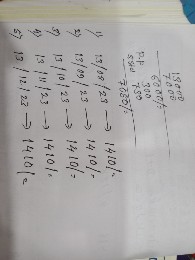 13000
7000
6000/-
D.P 300
750
7050/-
1) 13/09/23 → 1410/-
2) 13/09/23 → 1410/-
3) 13/10/23 → 1410/-
4) 13/11/23 → 1410/-
5) 13/12/23 → 1410/-